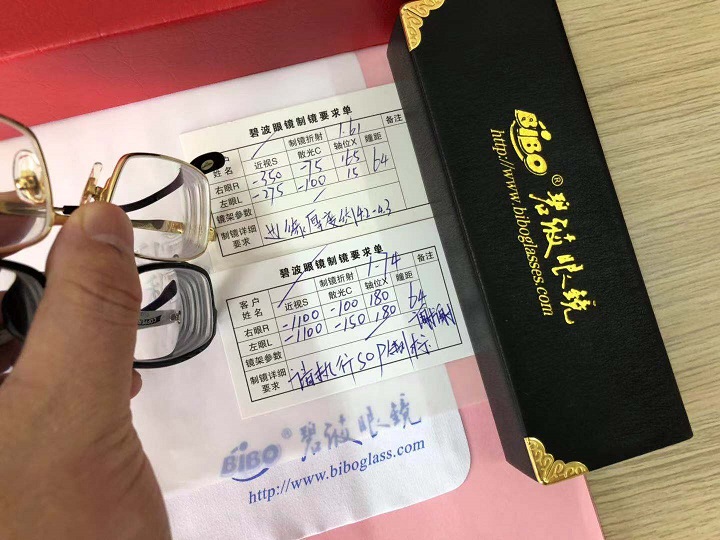 碧波眼镜制镜要求单
客户姓名 制镜折射 1.61 备注
近视S 散光C 轴位X 瞳距
右眼R -350 -75 165 64
左眼L -275 -100 15
镜架参数
制镜详细要求 边缘厚度约4.2-4.3
碧波眼镜制镜要求单
客户姓名 制镜折射 1.74 备注
近视S 散光C 轴位X 瞳距
右眼R -1100 -100 180 64
左眼L -1100 -150 180 谢谢
镜架参数
制镜详细要求 请执行SOP 标
BiBO® 碧波眼镜
http://www.biboglass.com
BiBO® 碧波眼镜
http://www.biboglasses.com